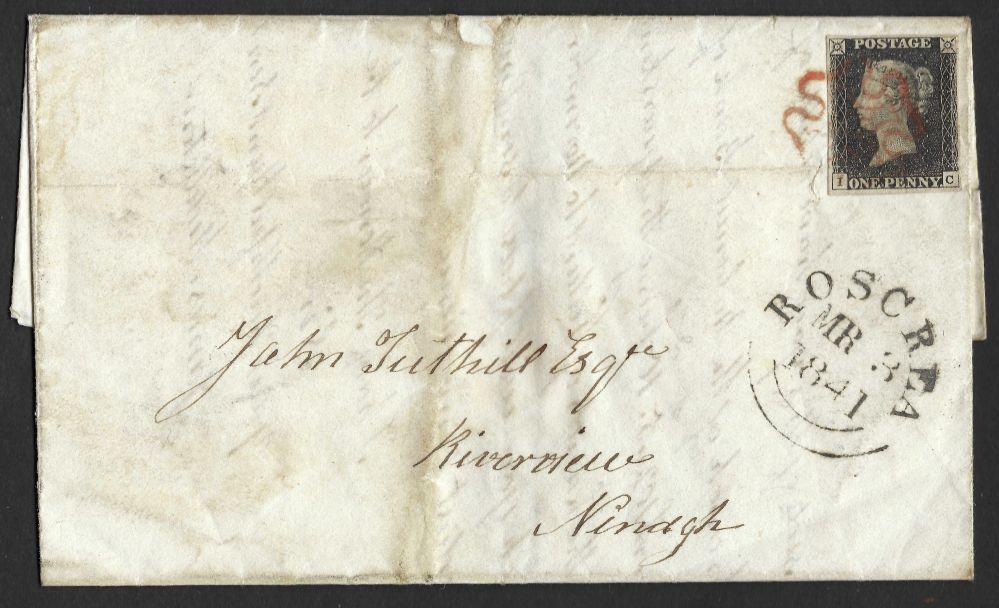 POSTAGE
I ONE PENNY. C
ROSCREA
MR 3
1841
John Tuthill Esqr
Riverview
Ninagh